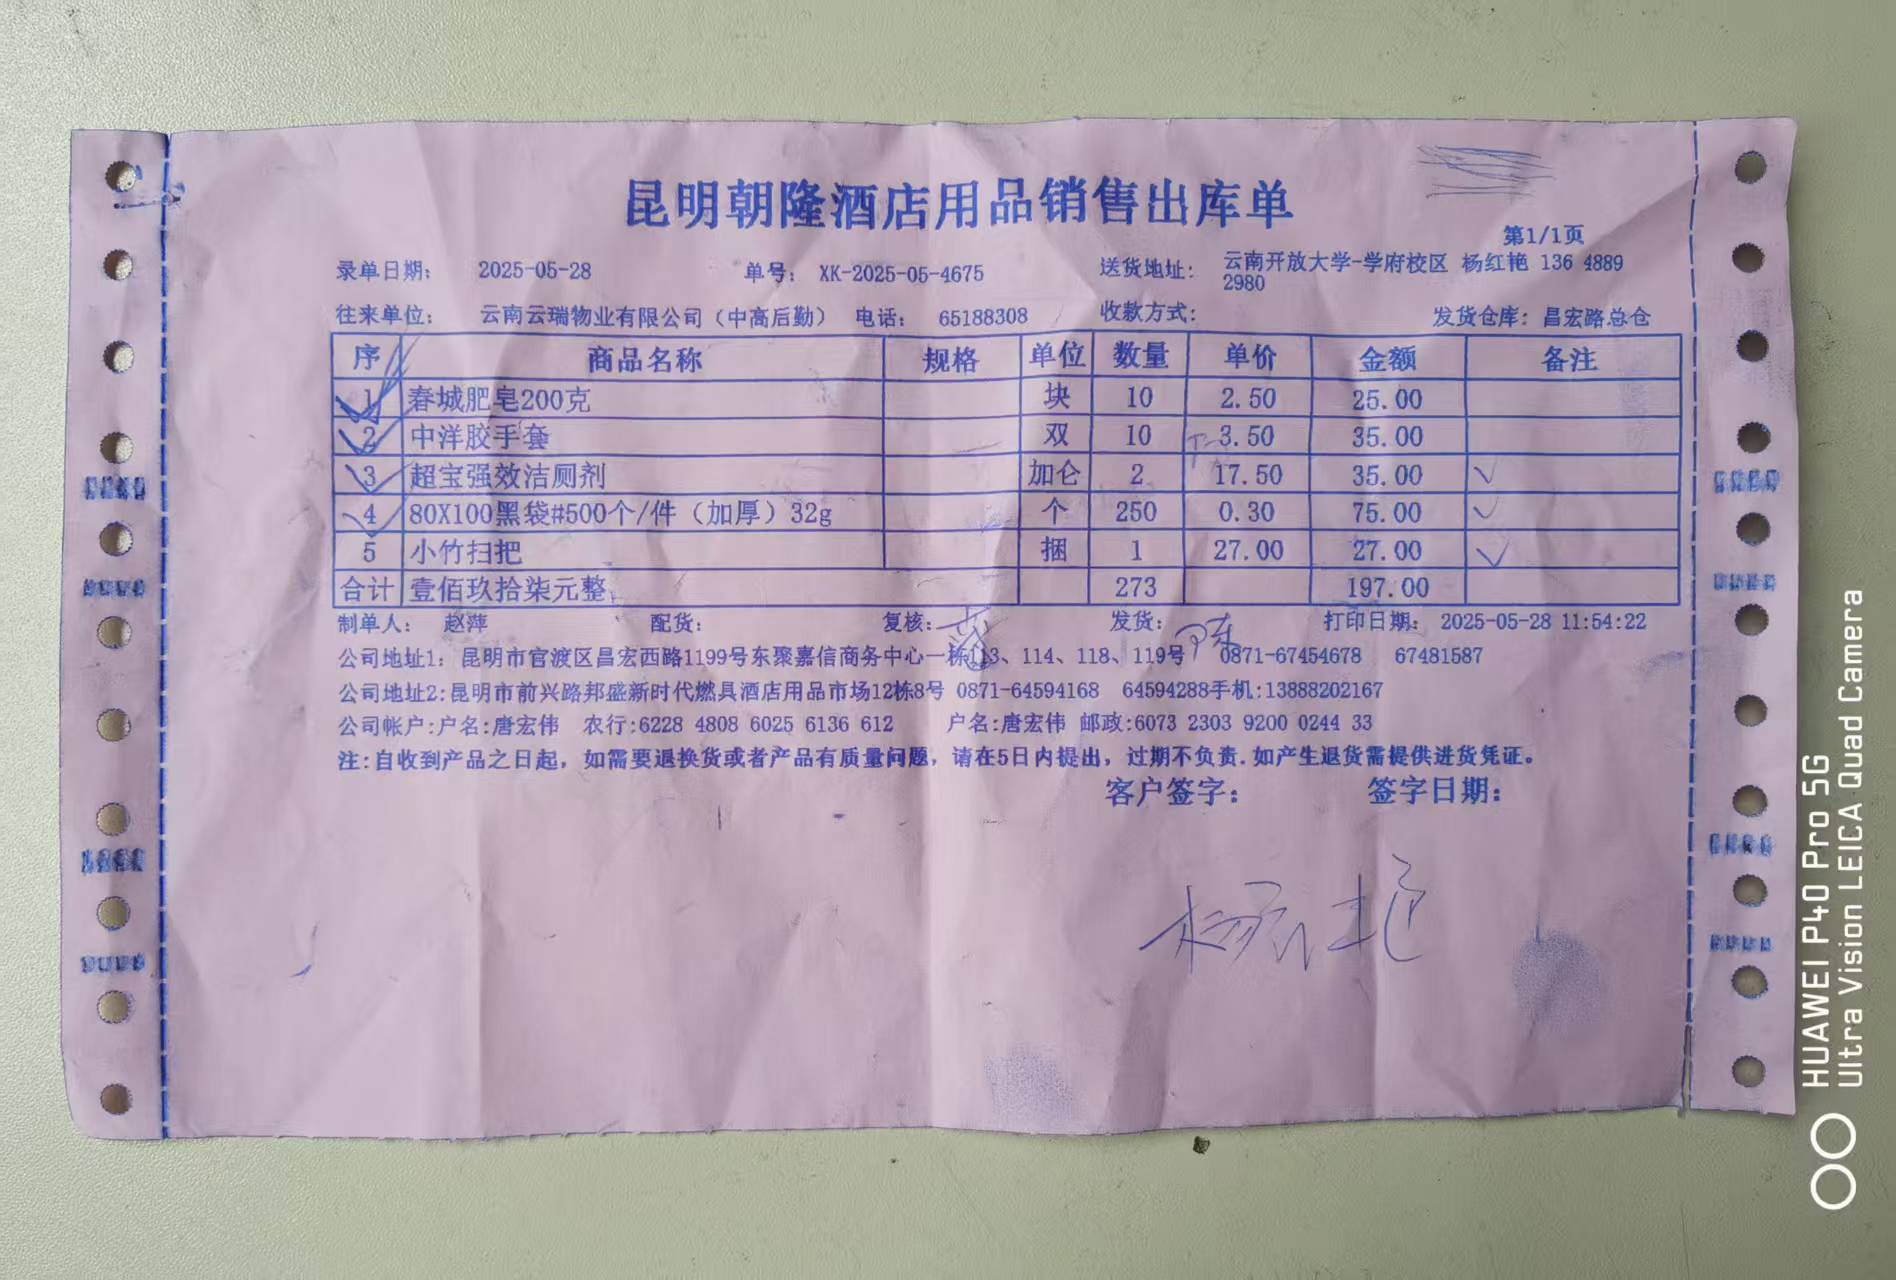 昆明朝隆酒店用品销售出库单
第1/1页
录单日期: 2025-05-28 单号: XK-2025-05-4675 送货地址: 云南开放大学-学府校区 杨红艳 136 4889
2980
往来单位: 云南云瑞物业有限公司（中高后勤） 电话: 65188308 收款方式: 发货仓库: 昌宏路总仓
序 商品名称 规格 单位 数量 单价 金额 备注
1 春城肥皂200克 块 10 2.50 25.00
2 中洋胶手套 双 10 3.50 35.00
3 超宝强效洁厕剂 加仑 2 17.50 35.00
4 80X100黑袋#500个/件（加厚）32g 个 250 0.30 75.00
5 小竹扫把 捆 1 27.00 27.00
合计 壹佰玖拾柒元整 273 197.00
制单人: 赵萍 配货: 复核: 发货: 陈 打印日期: 2025-05-28 11:54:22
公司地址1: 昆明市官渡区昌宏西路1199号东聚嘉信商务中心一栋113、114、118、119号 0871-67454678 67481587
公司地址2:昆明市前兴路邦盛新时代燃具酒店用品市场12栋8号 0871-64594168 64594288手机:13888202167
公司帐户:户名:唐宏伟 农行:6228 4808 6025 6136 612 户名:唐宏伟 邮政:6073 2303 9200 0244 33
注:自收到产品之日起，如需要退换货或者产品有质量问题，请在5日内提出，过期不负责.如产生退货需提供进货凭证。
客户签字: 签字日期:
杨红艳
HUAWEI P40 Pro 5G
Ultra Vision LEICA Quad Camera